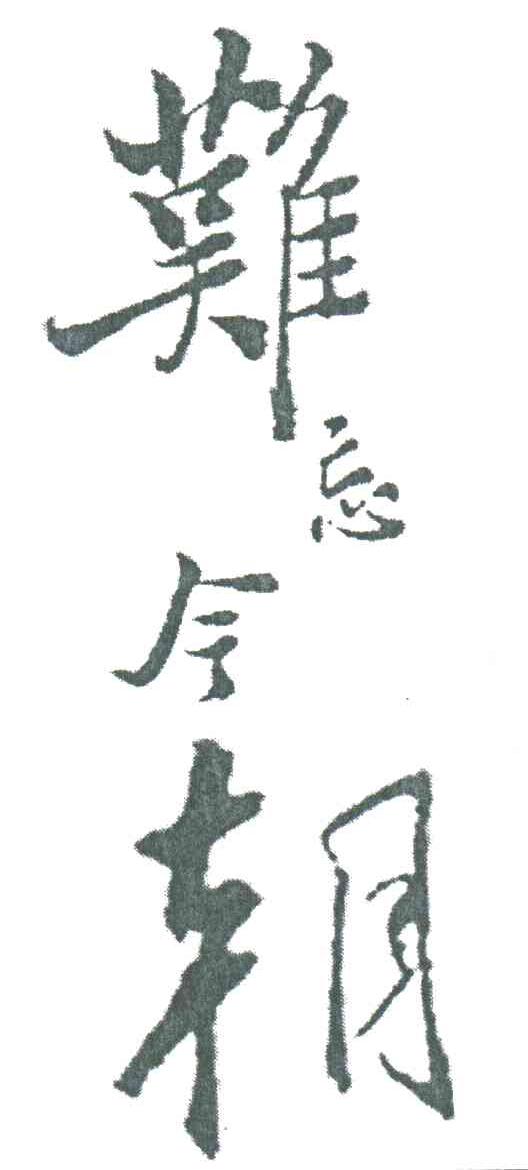 難忘今朝